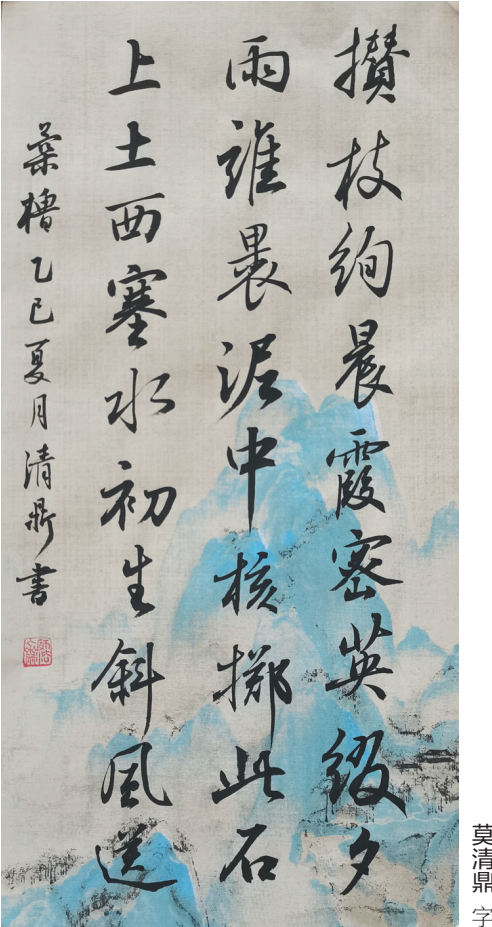 攢枝绚晨霞密英缀夕
雨誰裹泥中核擲此石
上土西塞水初生斜風送
乙巳夏月清鼎書
莫清鼎 字